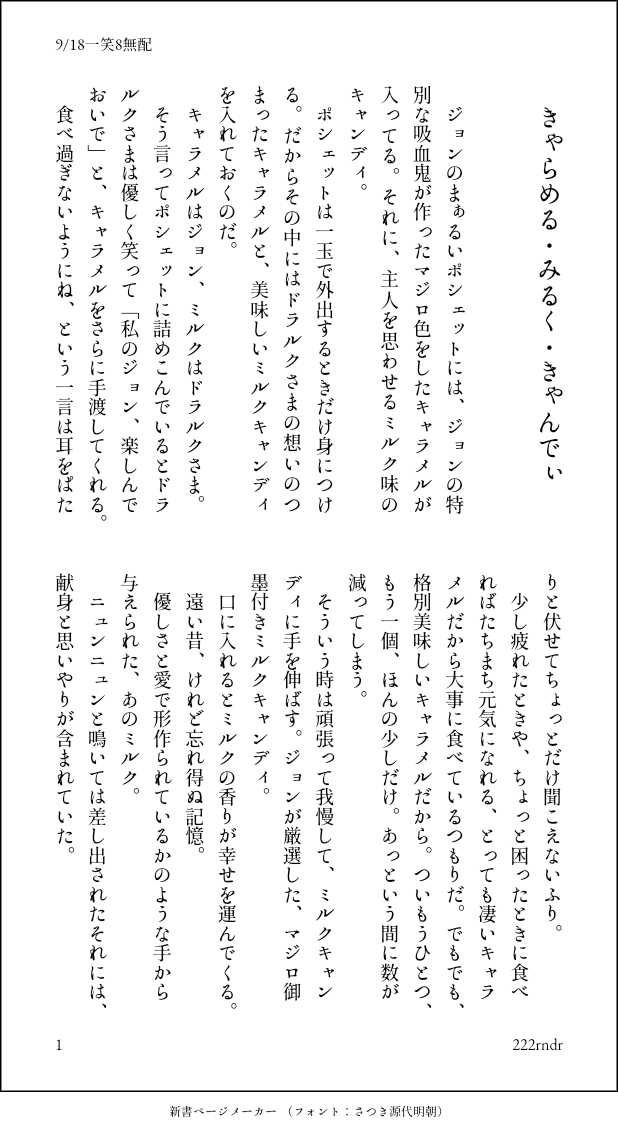 9/18一笑8無配
きゃらめる・みるく・きゃんでぃ
ジョンのまぁるいポシェットには、ジョンの特
別な吸血鬼が作ったマジロ色をしたキャラメルが
入ってる。それに、主人を思わせるミルク味の
キャンディ。
ポシェットは一玉で外出するときだけ身につけ
る。だからその中にはドラルクさまの想いのつ
まったキャラメルと、美味しいミルクキャンディ
を入れておくのだ。
キャラメルはジョン、ミルクはドラルクさま。
そう言ってポシェットに詰めこんでいるとドラ
ルクさまは優しく笑って「私のジョン、楽しんで
おいで」と、キャラメルをさらに手渡してくれる。
食べ過ぎないようにね、という一言は耳をぱた
りと伏せてちょっとだけ聞こえないふり。
少し疲れたときや、ちょっと困ったときに食べ
ればたちまち元気になれる、とっても凄いキャラ
メルだから大事に食べているつもりだ。でもでも、
格別美味しいキャラメルだから。ついもうひとつ、
もう一個、ほんの少しだけ。あっという間に数が
減ってしまう。
そういう時は頑張って我慢して、ミルクキャン
ディに手を伸ばす。ジョンが厳選した、マジロ御
墨付きミルクキャンディ。
口に入れるとミルクの香りが幸せを運んでくる。
遠い昔、けれど忘れ得ぬ記憶。
優しさと愛で形作られているかのような手から
与えられた、あのミルク。
ニュンニュンと鳴いては差し出されたそれには、
献身と思いやりが含まれていた。
1
222rndr
新書ページメーカー （フォント：さつき源代明朝）